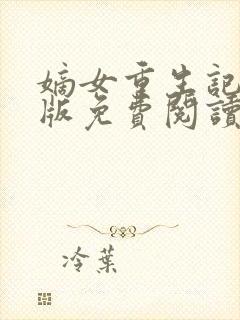 嫡女重生記
版免費閱讀
冷葉